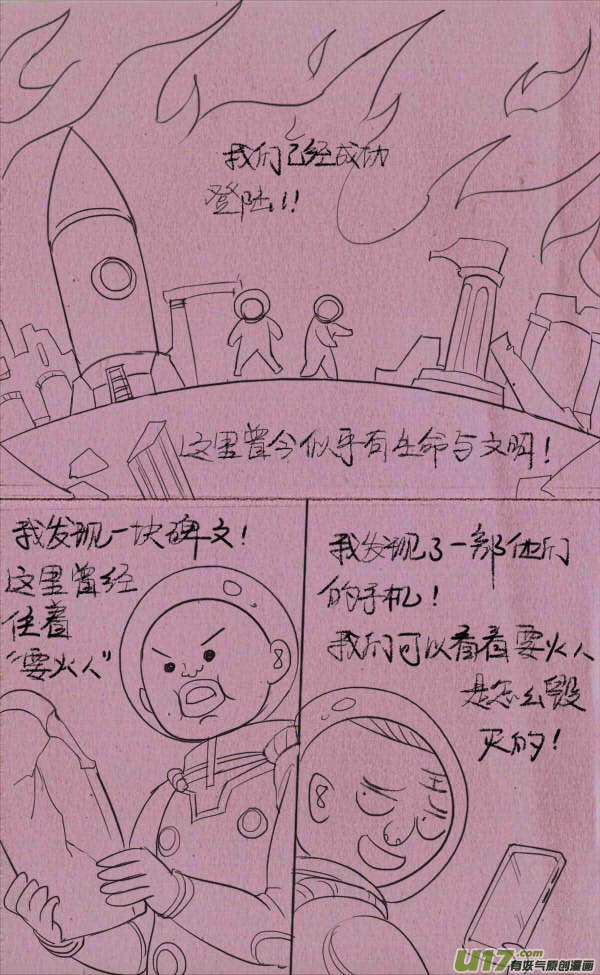 我们已经成功
登陆!!
这里曾今似乎有生命与文明!
我发现一块碑文!
这里曾经
住着
"要火人"
我发现了一部他们
的手机!
我们可以看看要火人
是怎么毁
灭的!
U17.com
有妖气原创漫画